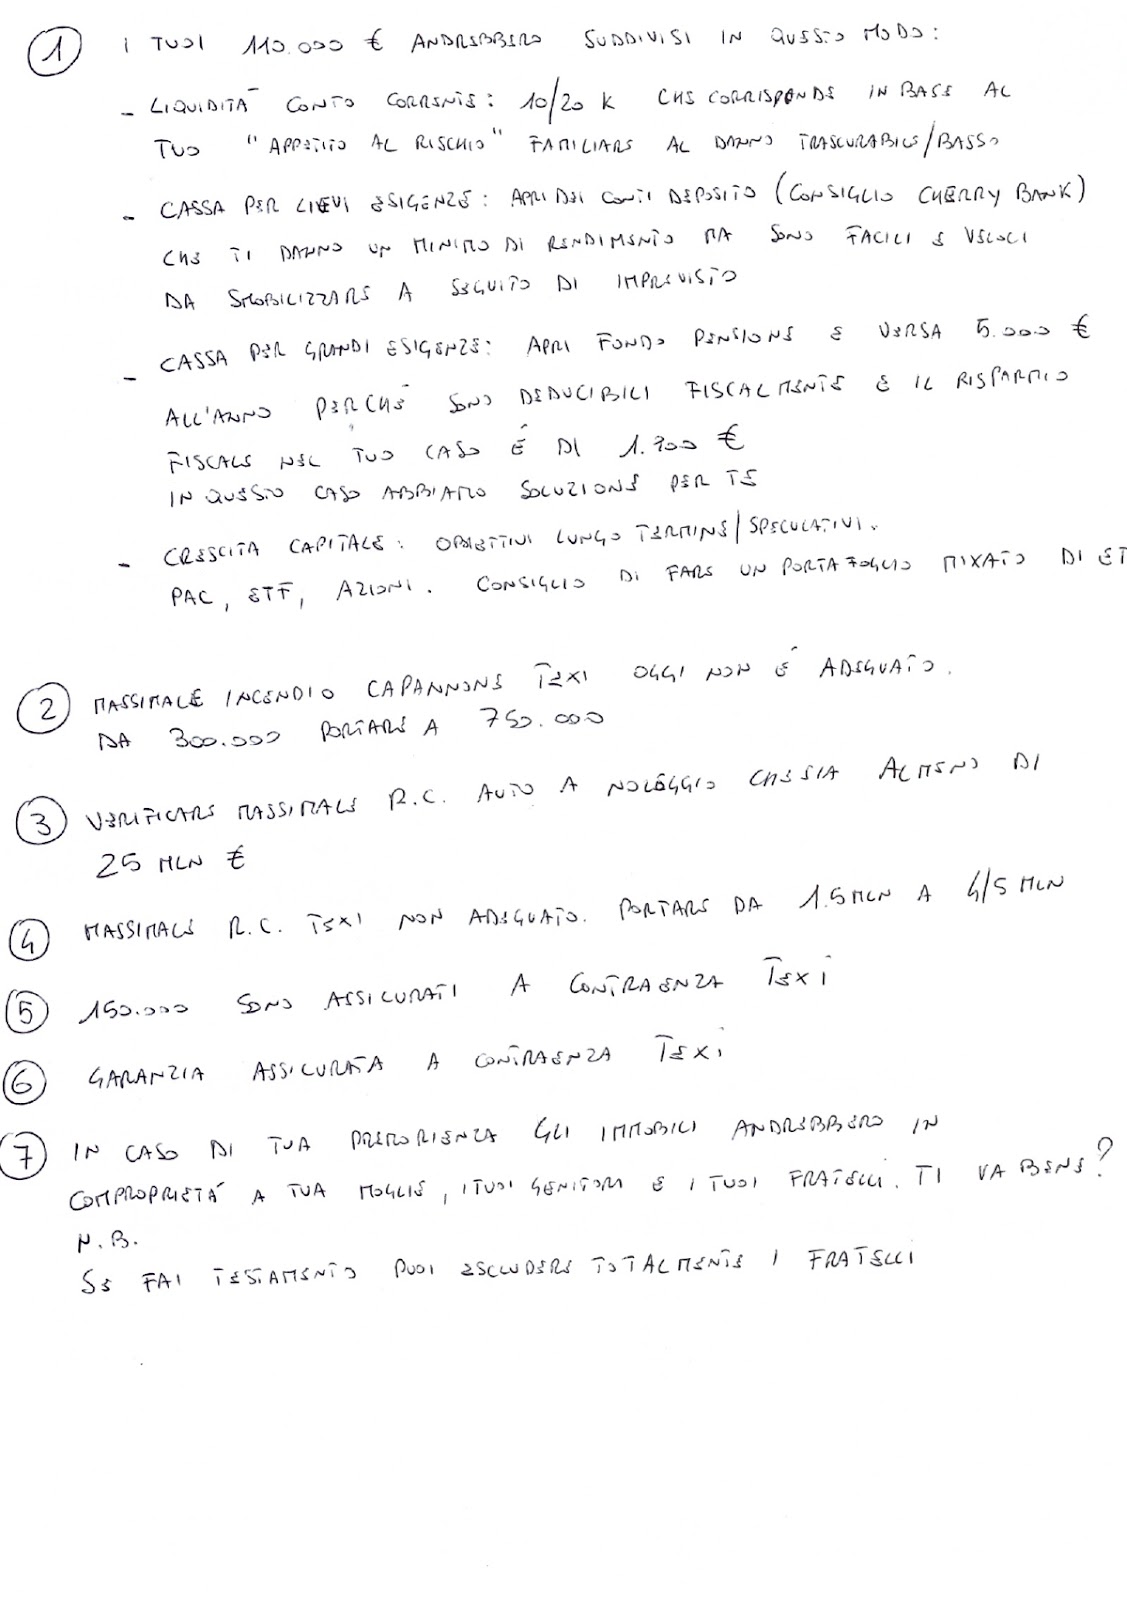 1 I TUOI 110.000 € ANDREBBERO SUDDIVISI IN QUESTO MODO:
- LIQUIDITÀ CONTO CORRENTE: 10/20 K CHE CORRISPONDE IN BASE AL
TUO "APPETITO AL RISCHIO" FAMILIARE AL DANNO TRASCURABILE/BASSO
- CASSA PER LIEVI ESIGENZE: APRI DEI CONTI DEPOSITO (CONSIGLIO CHERRY BANK)
CHE TI DANNO UN MINIMO DI RENDIMENTO MA SONO FACILI E VELOCI
DA SMOBILIZZARE A SEGUITO DI IMPREVISTO
- CASSA PER GRANDI ESIGENZE: APRI FONDO PENSIONE E VERSA 5.000 €
ALL'ANNO PERCHÉ SONO DEDUCIBILI FISCALMENTE E IL RISPARMIO
FISCALE NEL TUO CASO È DI €
IN QUESTO CASO ABBIAMO SOLUZIONE PER TE
- CRESCITA CAPITALE: OBIETTIVI LUNGO TERMINE/SPECULATIVI.
PAC, ETF, AZIONI. CONSIGLIO DI FARE UN PORTAFOGLIO MIXATO DI ET
2 MASSIMALE INCENDIO CAPANNONE TEXI OGGI NON È ADEGUATO.
DA 300.000 PORTARE A 750.000
3 VERIFICARE MASSIMALE R.C. AUTO A NOLEGGIO CHE SIA ALMENO DI
25 MLN €
4 MASSIMALE R.C. TEXI NON ADEGUATO. PORTARE DA 1.5 MLN A 4/5 MLN
5 150.000 SONO ASSICURATI A CONTRAENZA TEXI
6 GARANZIA ASSICURATA A CONTRAENZA TEXI
7 IN CASO DI TUA PREMORIENZA GLI IMMOBILI ANDREBBERO IN
COMPROPRIETÀ A TUA MOGLIE, I TUOI GENITORI E I TUOI FRATELLI. TI VA BENE?
N.B.
SE FAI TESTAMENTO PUOI ESCLUDERE TOTALMENTE I FRATELLI